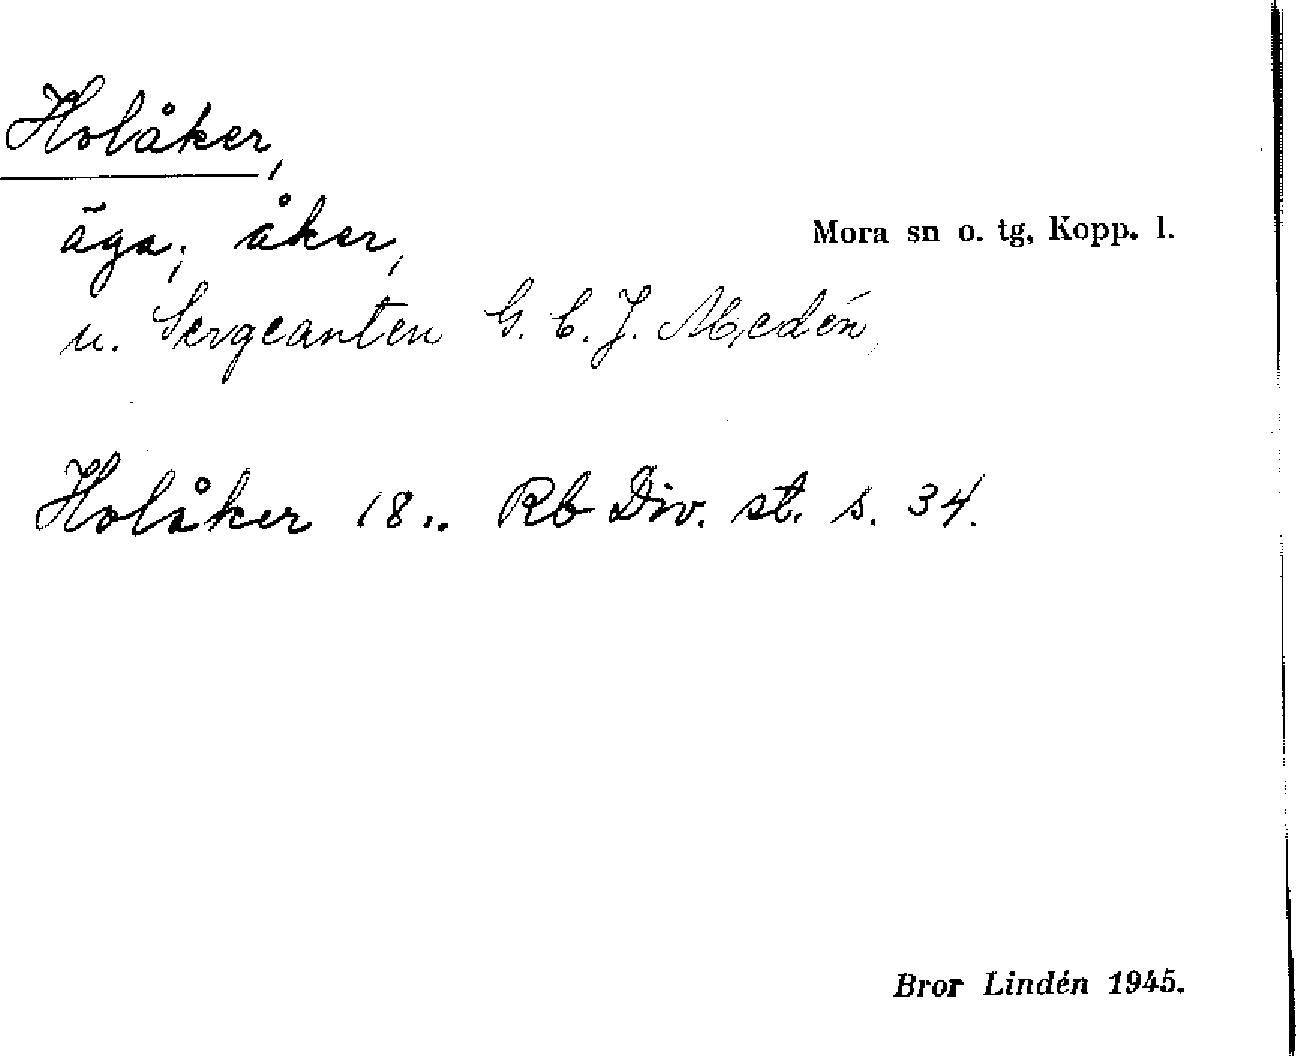 Holåker,
äga; åker,
Mora sn o. tg, Kopp. l.
u. Sergeanten G. C. J. Medén,
Holåker 18.. Rb Div. st. s. 34.
Bror Lindén 1945.